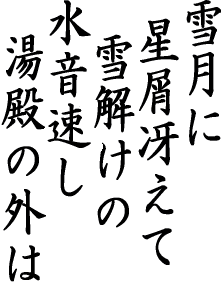 雪月に
星屑冴えて
雪解けの
水音速し
湯殿の外は